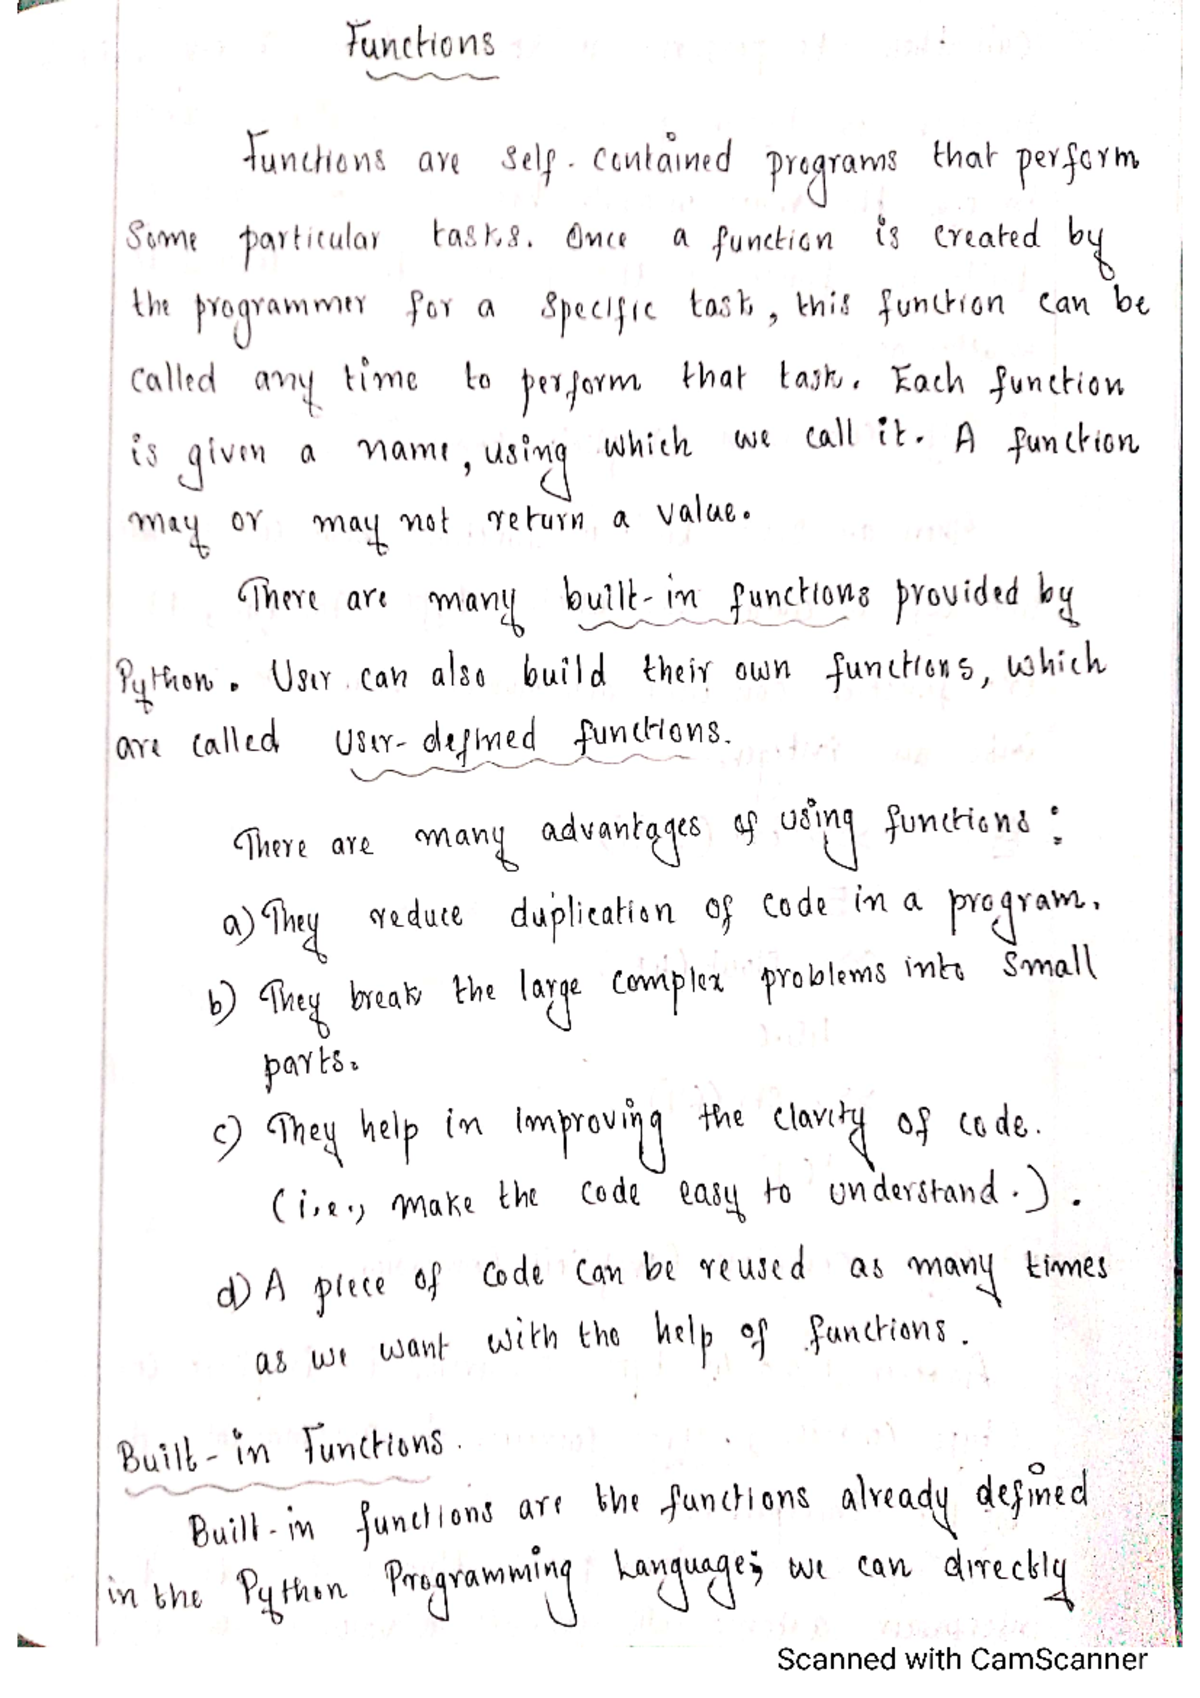 Functions
Functions are self-contained programs that perform
some particular tasks. Once a function is created by
the programmer for a specific task, this function can be
called any time to perform that task. Each function
is given a name, using which we call it. A function
may or may not return a value.
There are many built-in functions provided by
Python. User can also build their own functions, which
are called User-defined functions.
There are many advantages of using functions:
a) They reduce duplication of code in a program.
b) They break the large complex problems into small
parts.
c) They help in improving the clarity of code.
(i.e., make the code easy to understand.).
d) A piece of code can be reused as many times
as we want with the help of functions.
Built-in Functions.
Built-in functions are the functions already defined
in the Python Programming Language; we can directly
Scanned with CamScanner